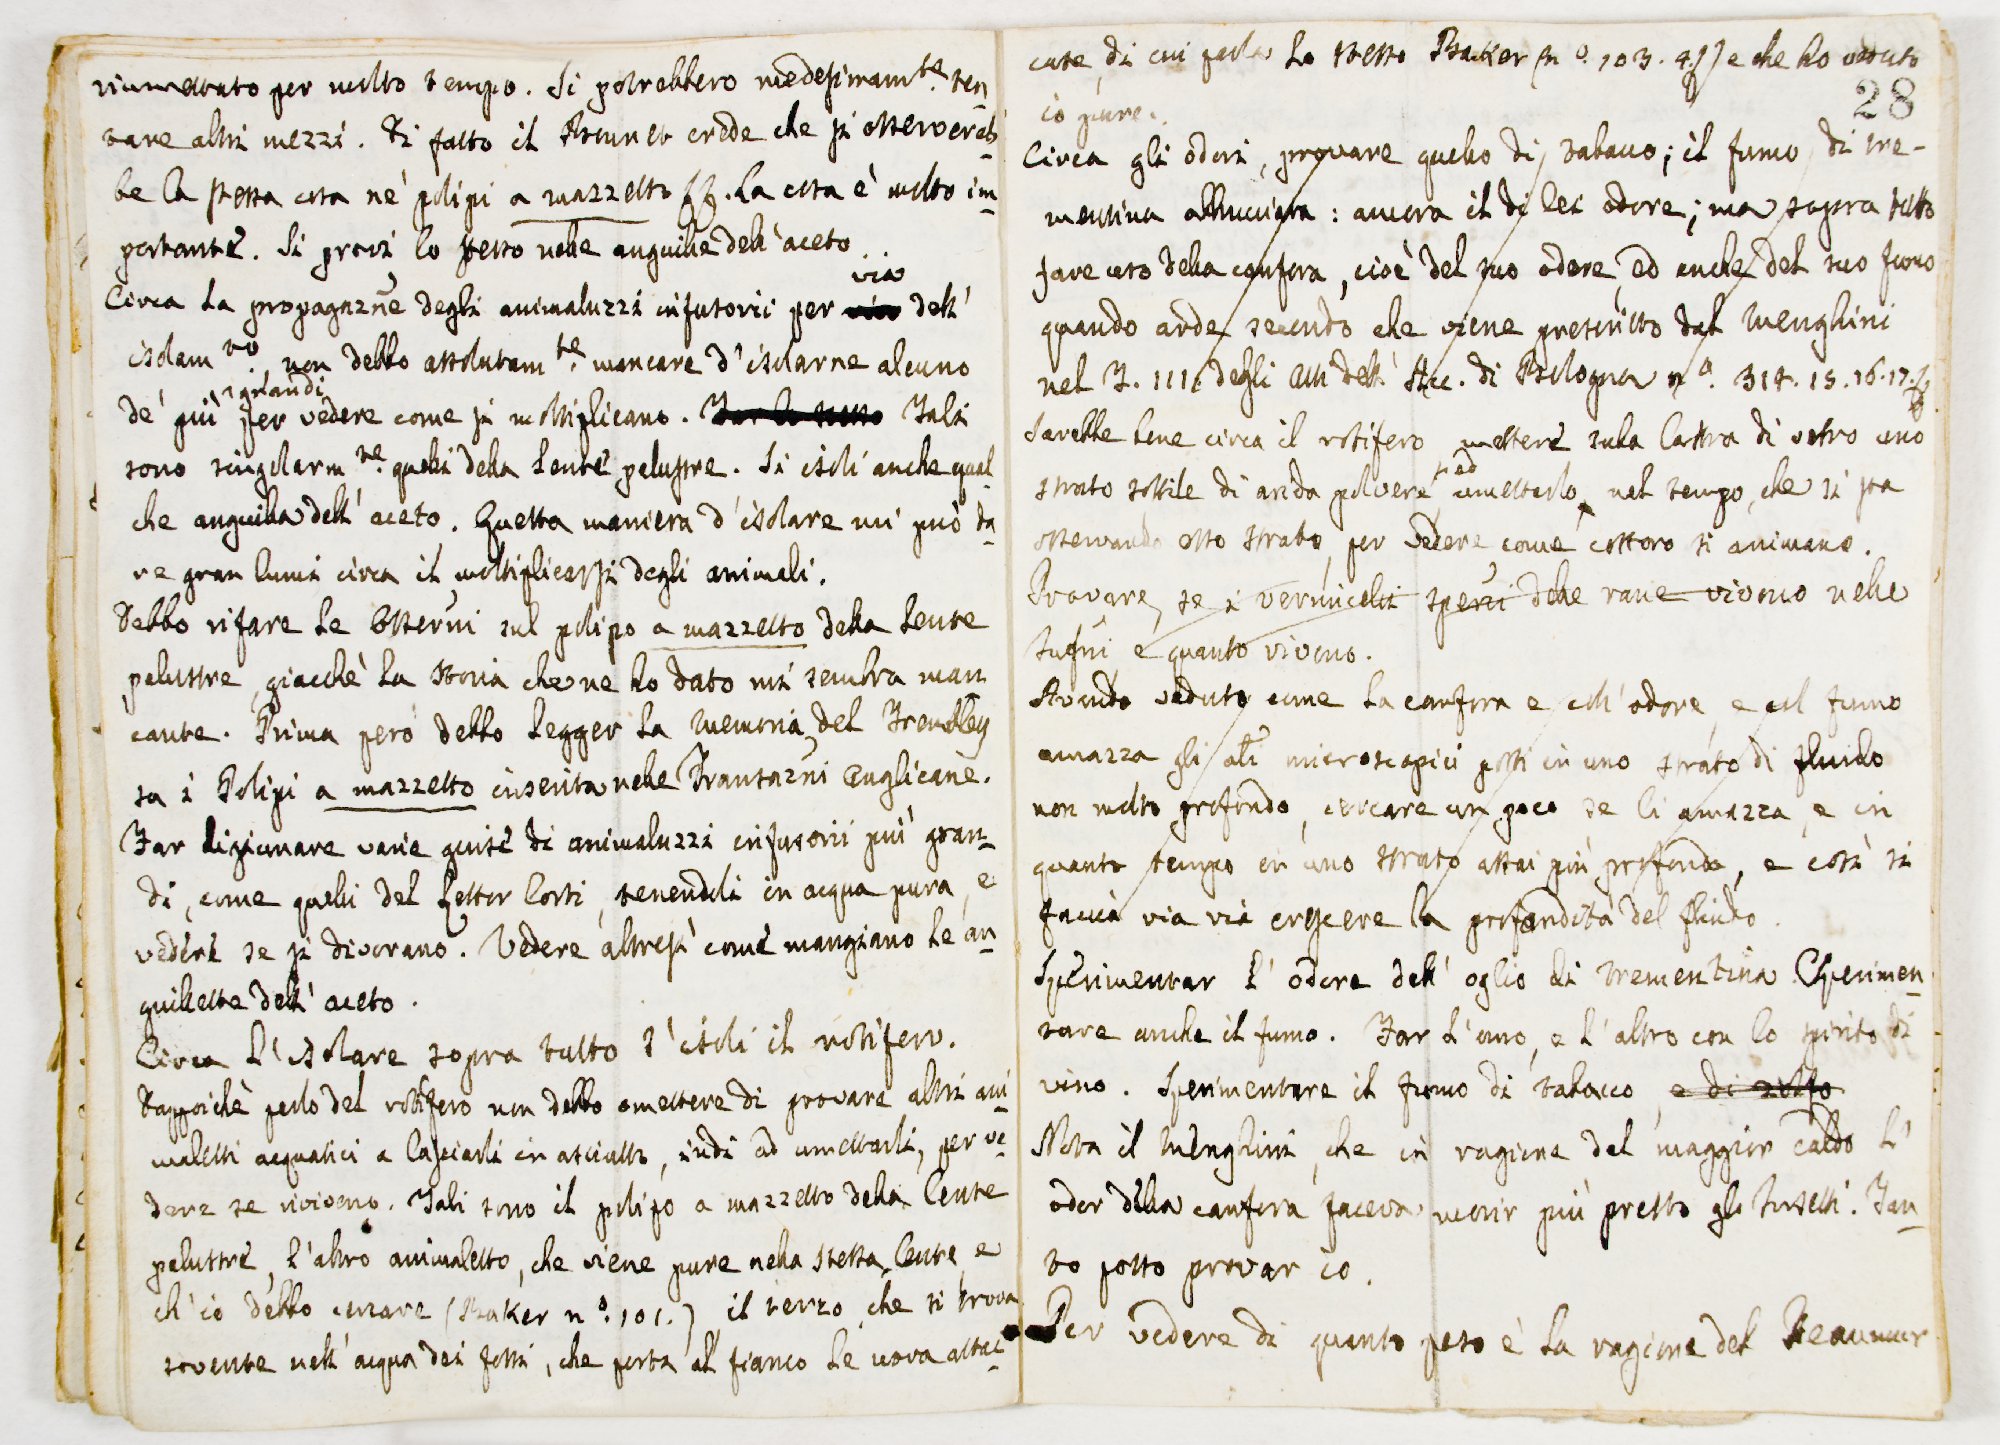 riumettato per molto tempo. Si potrebbero medesimamte. ten
tare altri mezzi. Di fatto il Brunet crede che si osservereb
be la stessa cosa ne' polipi a mazzetto ff. La cosa è molto im
portante. Si provi lo stesso nelle anguille dell'aceto.
Circa la propagazne degli animaluzzi infusorii per via dell'
isolamto. non debbo assolutamte. mancare d'isolarne alcuno
de' più grandi per vedere come si moltiplicano. Far lo stesso Tali
sono singolarmte. quelli della Lente palustre. Si isoli anche qual
che anguilla dell'aceto. Questa maniera d'isolare mi può da
re gran lumi circa il moltiplicarsi degli animali.
Debbo rifare le Osserni sul polipo a mazzetto della Lente
palustre, giacchè la storia che ne ho dato mi sembra man
cante. Prima però debbo legger la memoria del Trembley
su i Polipi a mazzetto inserita nelle Transazni Anglicane.
Far digiunare varie guise di animaluzzi infusorii più gran
di, come quelli del Lettor Corti, tenendoli in acqua pura, e
vedere se si divorano. Vedere altresì come mangiano le an
guillette dell'aceto.
Circa l'isolare sopra tutto s'isoli il rotifero.
Dappoichè parlo del rotifero non debbo omettere di provare altri ani
maletti acquatici a lasciarli in asciutto, indi ad umettarli, per ve
dere se rivivono. Tali sono il polipo a mazzetto della Lente
palustre, l'altro animaletto, che viene pure nella stessa Lente, e
ch'io debbo cercare (Baker no. 101.) il terzo che si trova
sovente nell'acqua dei fossi, che porta al fianco le uova attac
cate, di cui parla lo stesso Baker (no. 103. 4)) e che ho veduto
28
io pure.
Circa gli odori, provare quello di tabacco; il fumo di tre-
mentina abbrucciata: ancora il di lei odore; ma sopra tutto
fare uso della canfora, cioè del suo odore, ed anche del suo fumo
quando arde secondo che viene prescritto dal Menghini
nel T. III. degli Atti dell'Acc. di Bologna no. 314. 15. 16. 17.
Sarebbe bene circa il rotifero mettere sulla lastra di vetro uno
strato sottile di arida polvere, ed umettarlo, nel tempo, che si sta
osservando osso strato, per vedere come costoro si animano.
Provare, se i vermicelli sperni delle rane vivono nelle
Infni e quanto vivono.
Avendo veduto come la canfora e coll'odore, e col fumo
amazza gli ali microscopici posti in uno strato di fluido
non molto profondo, cercare un poco se li amazza, e in
quanto tempo in uno strato assai più profondo, e così si
faccia via via crescere la profondità del fluido.
Sperimentar l'odore dell'oglio di trementina. Sperimen
tare anche il fumo. Far l'uno, e l'altro con lo spirito di
vino. Sperimentare il fumo di tabacco, e di zolfo
Nota il Menghini, che in ragione del maggior caldo l'
odor della canfora faceva morir più presto gl'Insetti. Tan
to posso provar io.
Per vedere di quanto peso è la ragione del Reaumur